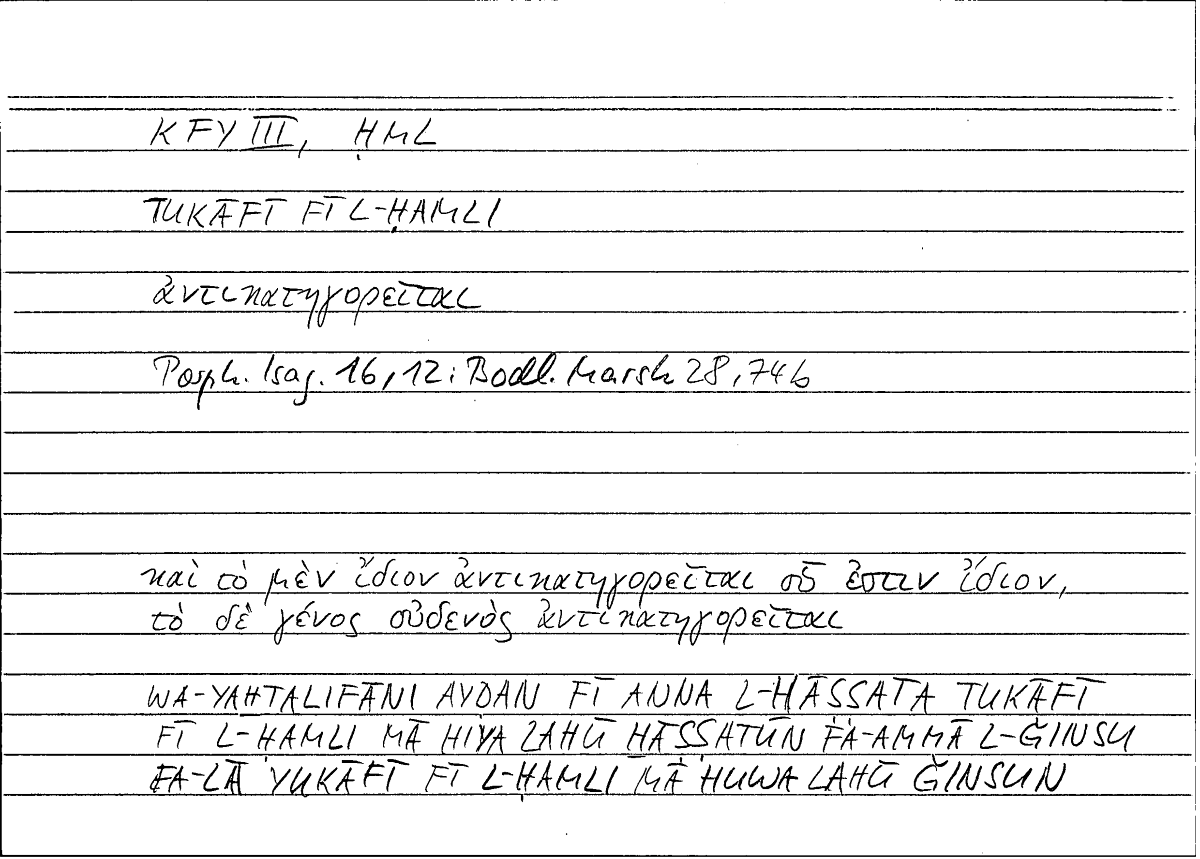 KFY III, ḤML
TUKĀFĪ FĪ L-ḤAMLI
ἀντικατηγορεῖται
Porph. Isag. 16,12: Bodl. Marsh 28,74b
καὶ τὸ μὲν ἴδιον ἀντικατηγορεῖται οὗ ἐστιν ἴδιον,
τὸ δὲ γένος οὐδενὸς ἀντικατηγορεῖται
WA-YAḪTALIFĀNI AYḌAN FĪ ANNA L-ḪĀṢṢATA TUKĀFĪ
FĪ L-ḤAMLI MĀ HIYA LAHŪ ḪĀṢṢATUN FA-AMMĀ L-ǦINSU
FA-LĀ YUKĀFĪ FĪ L-ḤAMLI MĀ HUWA LAHŪ ǦINSUN